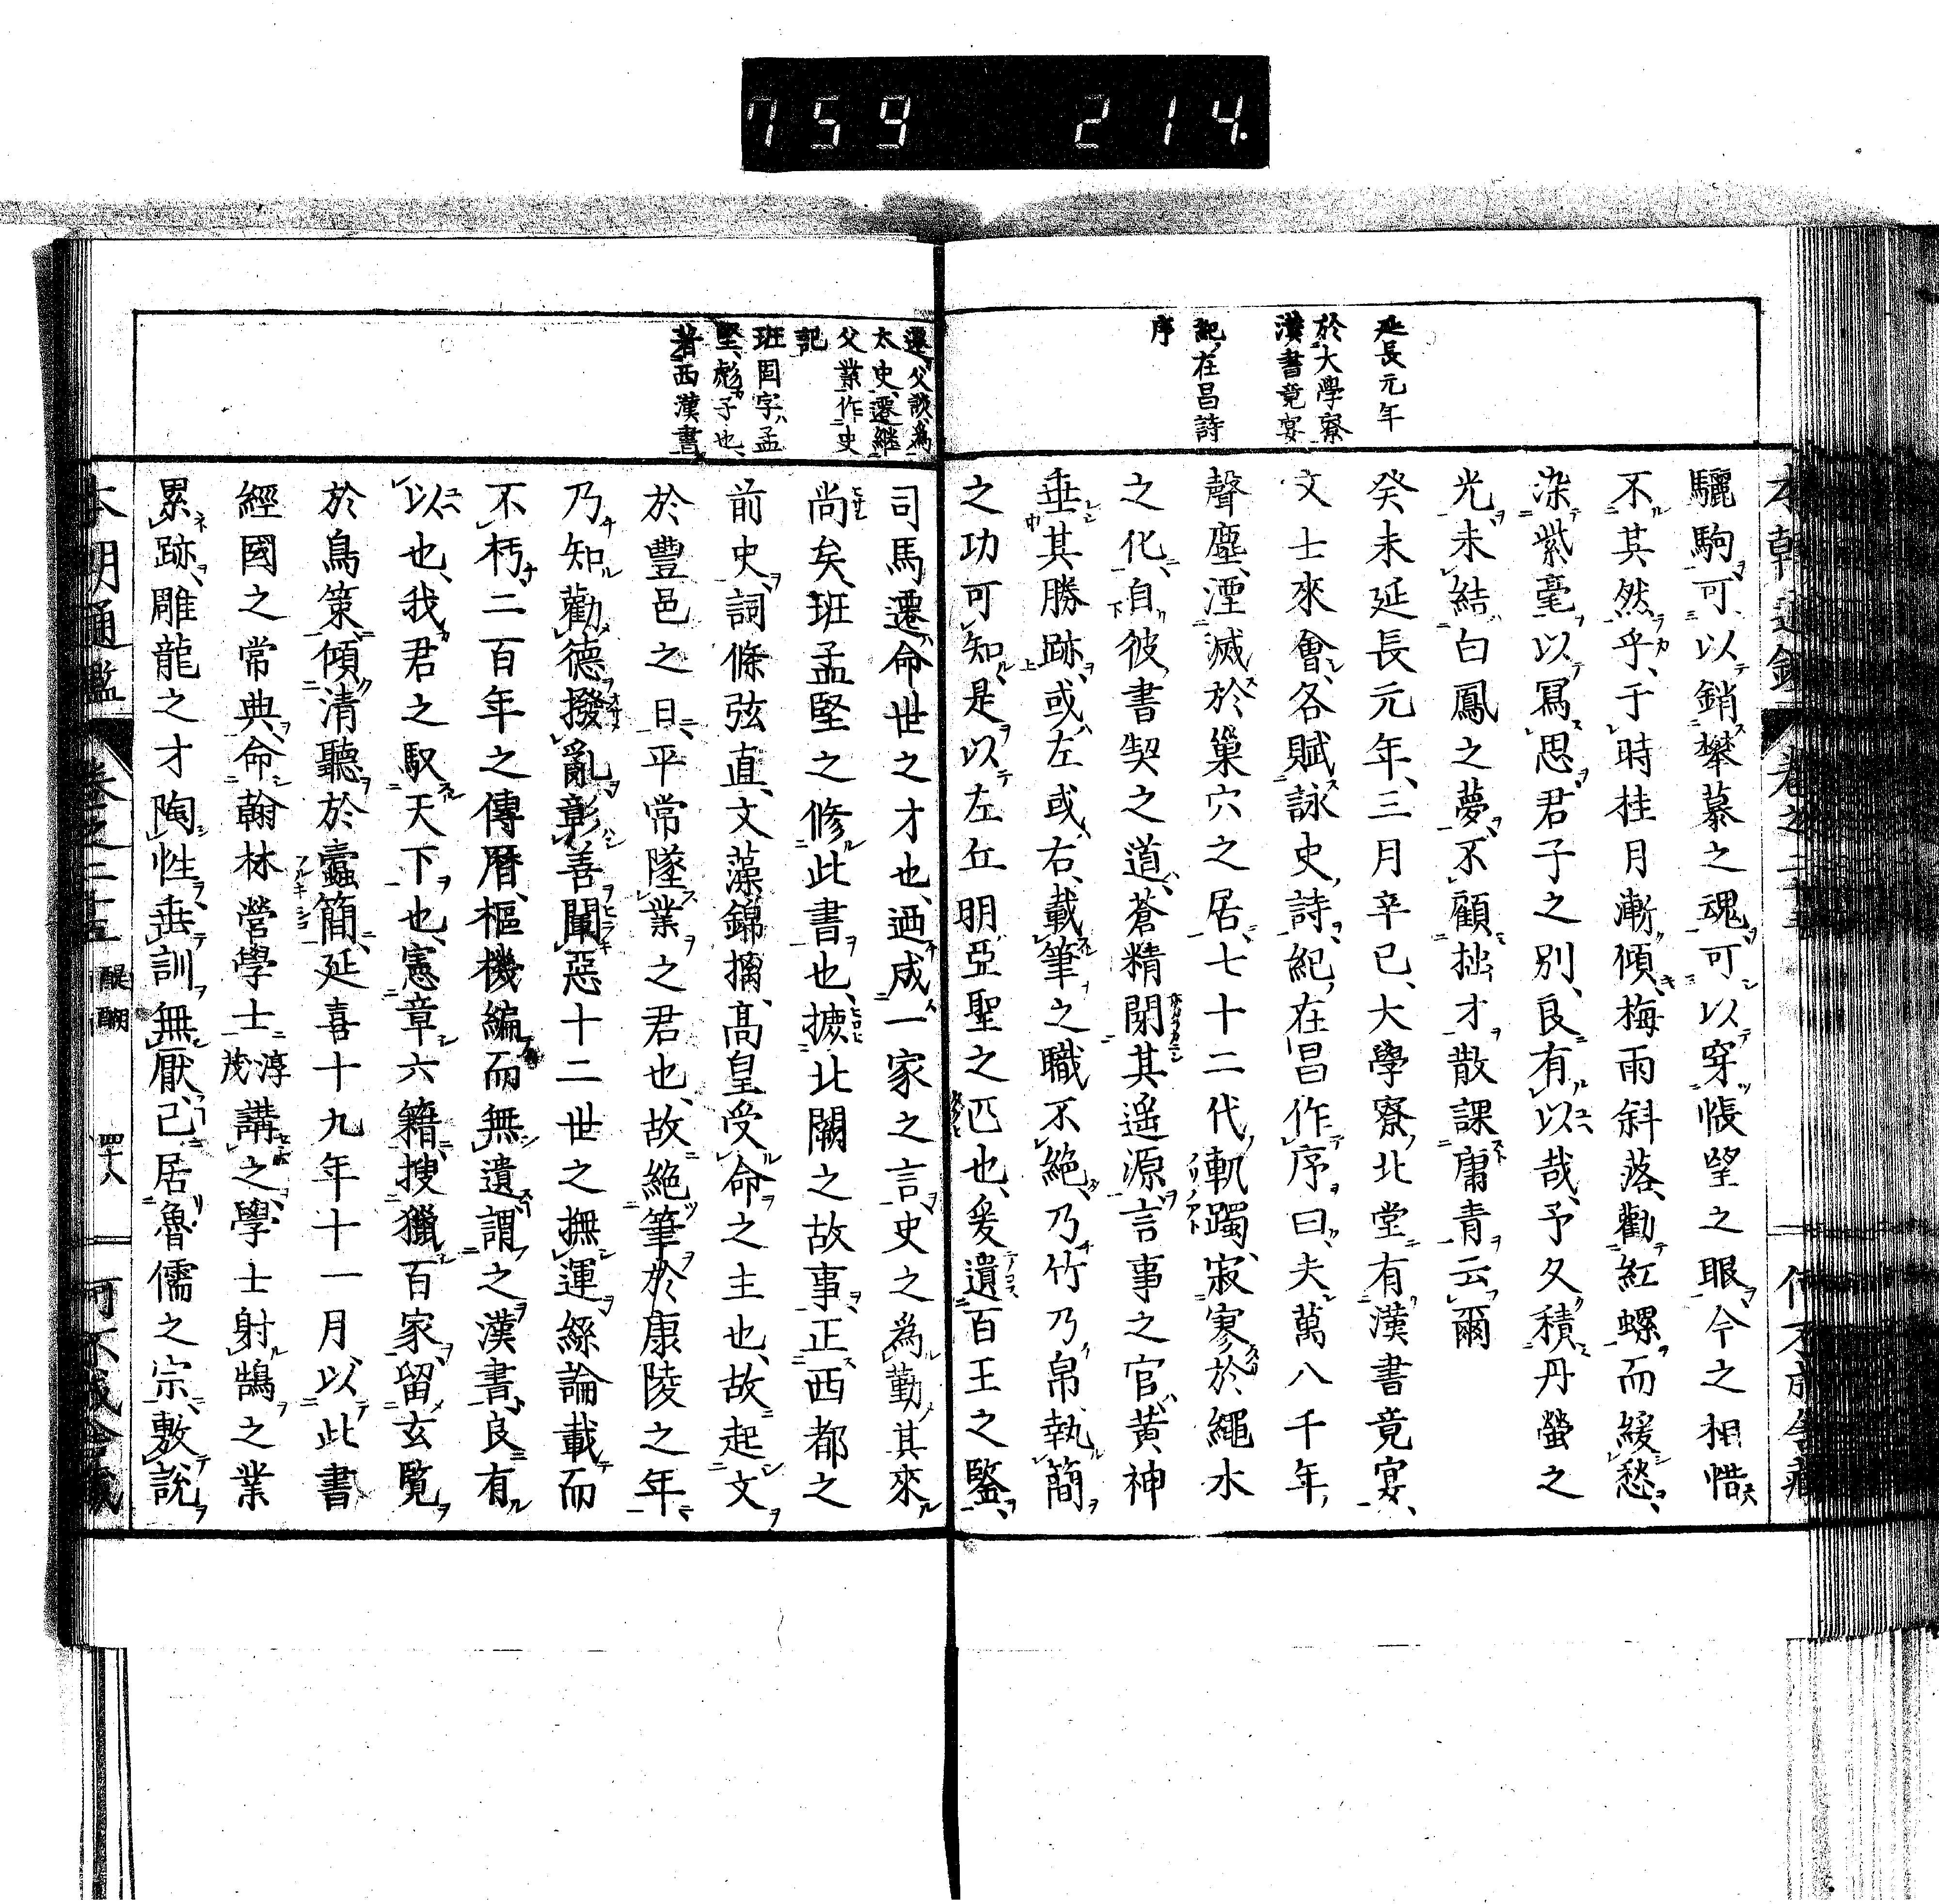 759 214
延長元年
於大學寮
漢書竟宴
紀在昌詩
序
驪駒可以銷攀慕之魂可以穿悵望之眼今之相惜
不其然乎于時桂月漸傾梅雨斜落勸紅螺而緩愁
染紫毫以寫思君子之別良有以哉予久積丹螢之
光未結白鳳之夢不顧拙才散課庸青云爾
癸未延長元年三月辛巳大學寮北堂有漢書竟宴
文士來會各賦詠史詩紀在昌作序曰夫萬八千年
聲塵湮滅於巢穴之居七十二代軌躅寂寥於繩水
之化自彼書契之道蒼精閉其遥源言事之官黃神
垂其勝跡或左或右載筆之職不絕乃竹乃帛執簡
之功可知是以左丘明亞聖之匹也爰遺百王之鑒
遷父談為
太史遷継
父業作史
記
班固字孟
堅彪子也
著西漢書
司馬遷命世之才也迺成一家之言史之為勤其來
尚矣班孟堅之修此書也摭北闕之故事正西都之
前史詞條弦直文藻錦摛高皇受命之主也故起文
於豐邑之日平常墜業之君也故絕筆於康陵之年
乃知勸德撥亂彰善闡惡十二世之撫運綵論載而
不朽二百年之傳曆樞機編而無遺謂之漢書良有
以也我君之馭天下也憲章六籍搜獵百家留玄覧
於鳥策傾清聽於蠹簡延喜十九年十一月以此書
經國之常典命翰林營學士淳茂講之學士射鵠之業
累跡雕龍之才陶性垂訓無厭已居魯儒之宗敷說
本朝通鑑 卷之二十五 醍醐 四十八